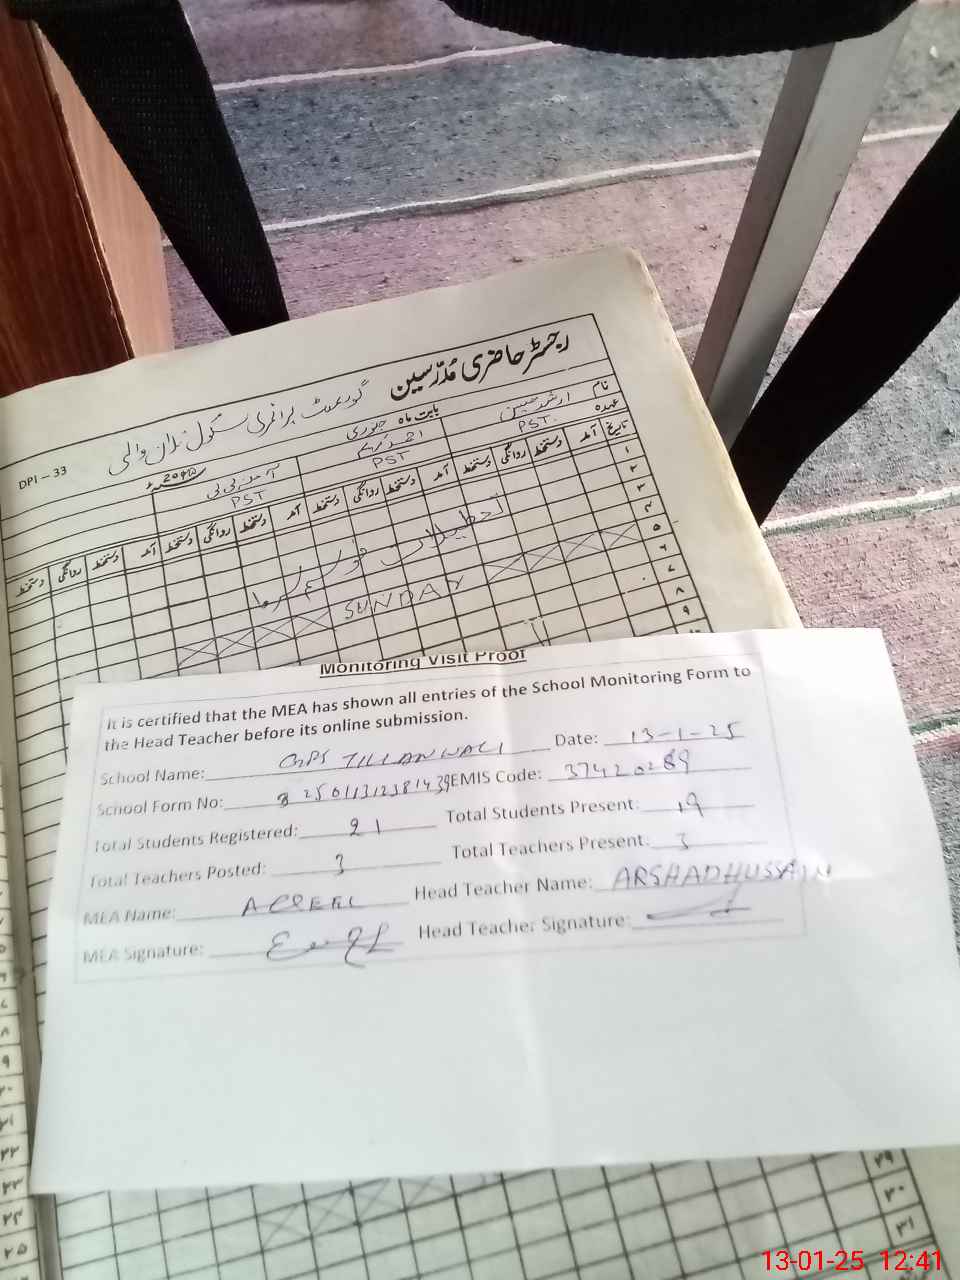 رجسٹر حاضری مُدرّسین
گورنمنٹ پرائمری سکول ٹلان والی
DPI – 33
بابت ماہ جنوری 2025
نام ارشد حسین
عہدہ PST. PST PST
تاریخ آمد دستخط روانگی دستخط آمد دستخط روانگی دستخط آمد دستخط روانگی دستخط آمد دستخط روانگی دستخط
۱
۲
۳
۴
۵
۶
۷
۸
۹
تعطیلات موسم سرما
SUNDAY
Monitoring Visit Proof
It is certified that the MEA has shown all entries of the School Monitoring Form to
the Head Teacher before its online submission.
School Name: GPS TILLANWALI Date: 13-1-25
School Form No: EMIS Code: 37420289
Total Students Registered: 21 Total Students Present: 19
Total Teachers Posted: 3 Total Teachers Present: 3
MEA Name: Head Teacher Name: ARSHAD HUSSAIN
MEA Signature: Head Teacher Signature:
۸
۹
۲۰
۲۱
۲۲
۲۳
۲۴
۲۵
۲۹
۳۰
۳۱
13-01-25 12:41